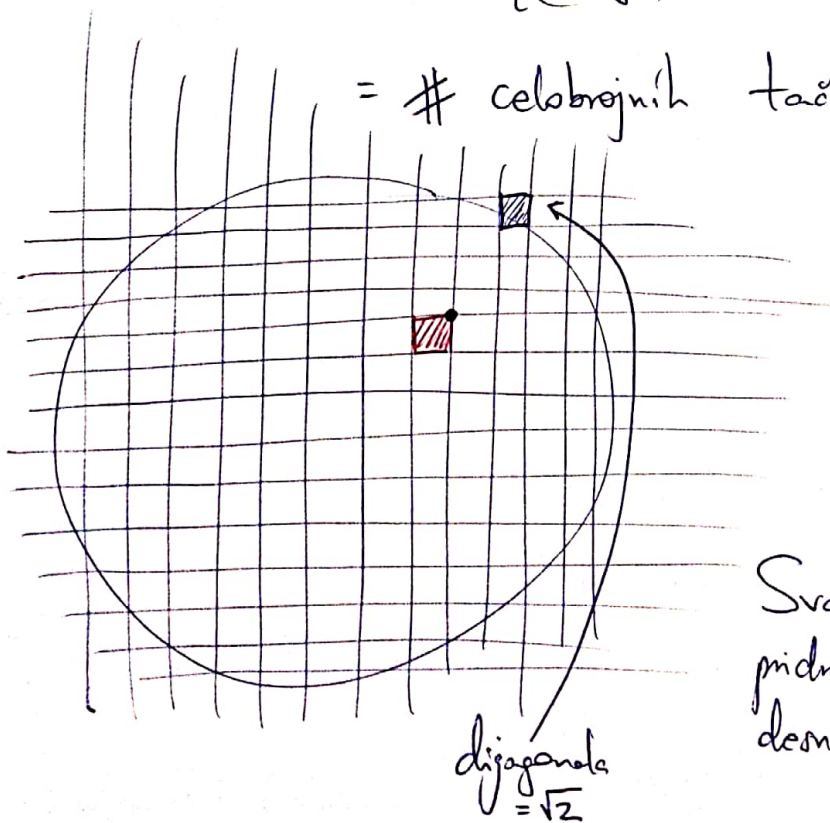 = # celobrojnih tač
Sv
pridr
desn
dijagonala
= √2